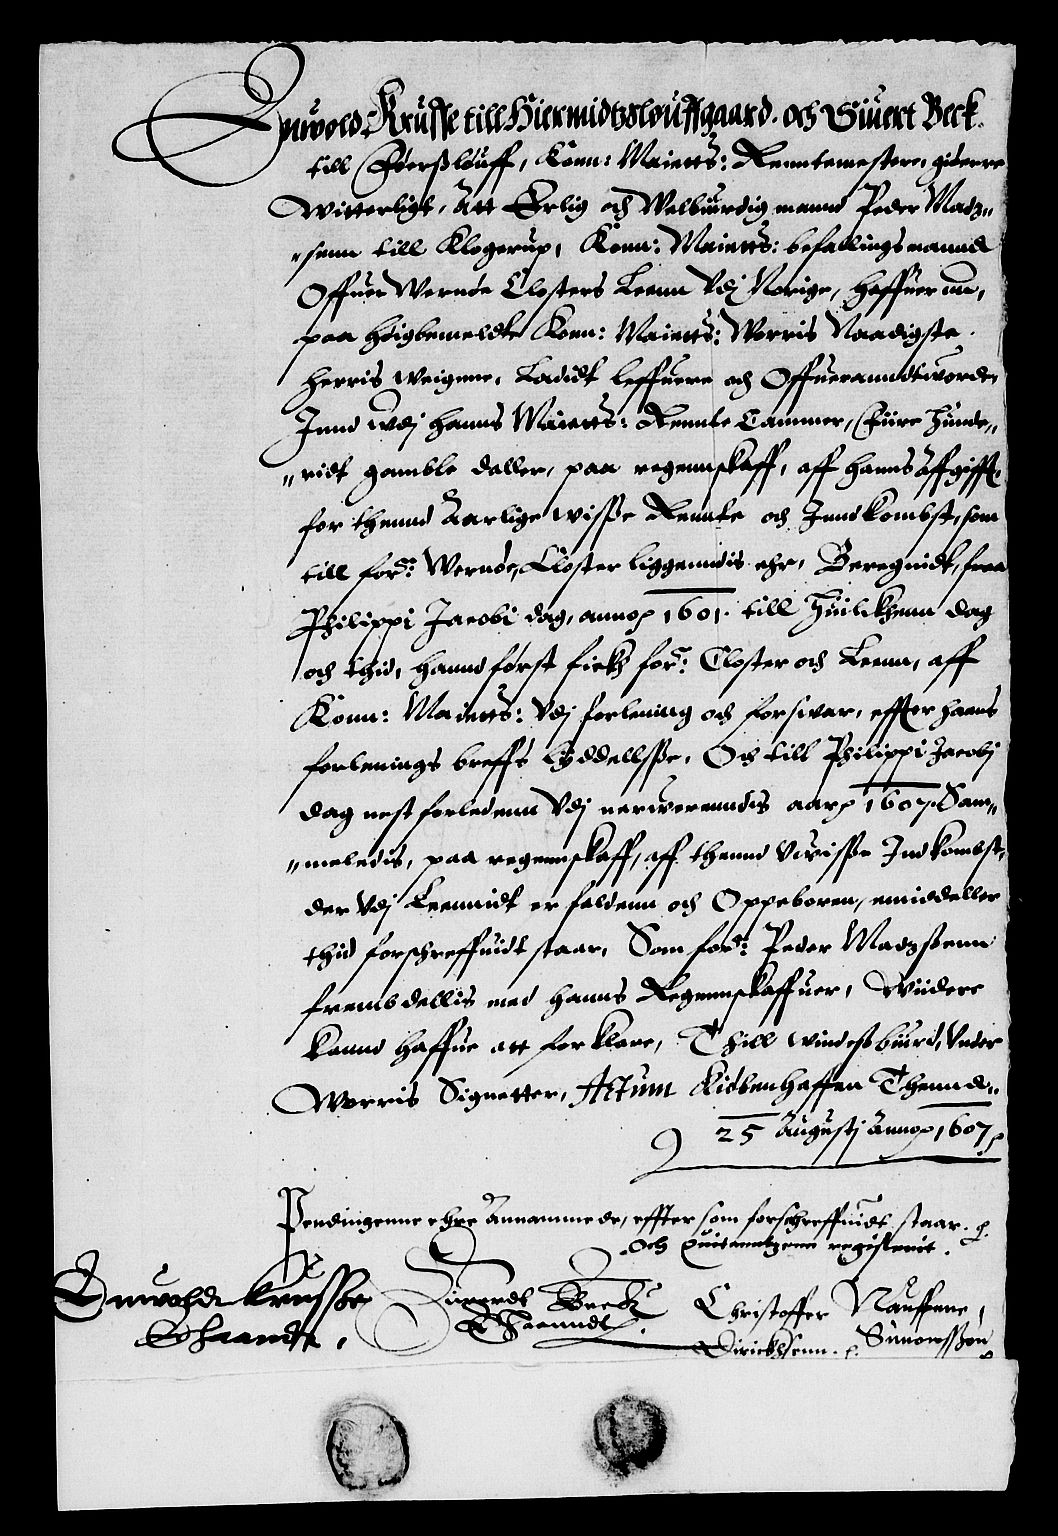 Enwold Krusse till Hiermidtzslouffgaard. och Siuert Beck.
till Förßlouff, Konn: Maietts: Renntemestere, giörre
Witterligt, Att Erlig och Welburdig mannd Peder Madz„
„senn till Klogerup, Konn: Maietts: befallingsmannd
Offuer Wernöe Closters Leenn Vdj Norige, Haffuer nu,
paa höigbemeldte Konn: Maietts: Worris Naadigste
Herris weigene, Ladidt leffuere och Offueranndtworde,
Innd wdj hanns Maietts: Rennte Cammer, Fiire Hunde„
„ridt gamble daller, paa regennskaff, aff hanns Affgifft
for thennd Aarlige wisse Rennte och Inndkombst, som
till for:ne Wernöe Closter liggenndis ehr, Beregnidt, fraa
Philippi Jacobi dag, anno 1601. till Huilckhenn dag
och thid, hannd först fickh for:ne Closter och Leenn, aff
Konn: Maietts: Vdj forlening och forsuar, effter hanns
forlenings breffs lyddellsse, Och till Philippi Jacobj
dag nest forledenn Vdj nerwerenndis aar 1607. Sam„
„meledis, paa regennskaff, aff thennd Vuisse Indkombst,
der Vdj Leenidt er faldenn och Oppeboren, emiddeller
thid forschreffuidt staar, Som for:ne Peder Madzssenn
frembdellis med hanns Regennskaffuer, Wiidere
kannd haffue att forklare, Thill windeßburd, Vnder
Worris Signetter, Actum Kiöbenhaffen Thennd„
25 Augustj Anno 1607
Pendingenne ehre Annammede, effter som forschreffuidt staar.
Och Quitantzenn registerit.
Enuoldt Krusse Siuerdt Beck Christoffer Nauffne,
Ehaandt. EHaanndt. Dirickhsenn. Simonssøn